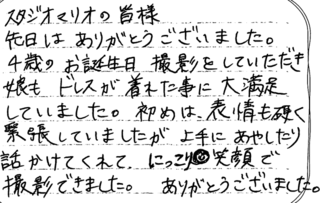 スタジオマリオの皆様
先日は ありがとうございました。
4歳の お誕生日 撮影をしていただき
娘も ドレスが 着れた事に 大満足
していました。初めは、表情も硬く
緊張していましたが 上手に あやしたり
話かけてくれて、にっこり笑顔で
撮影できました。 ありがとうございました。